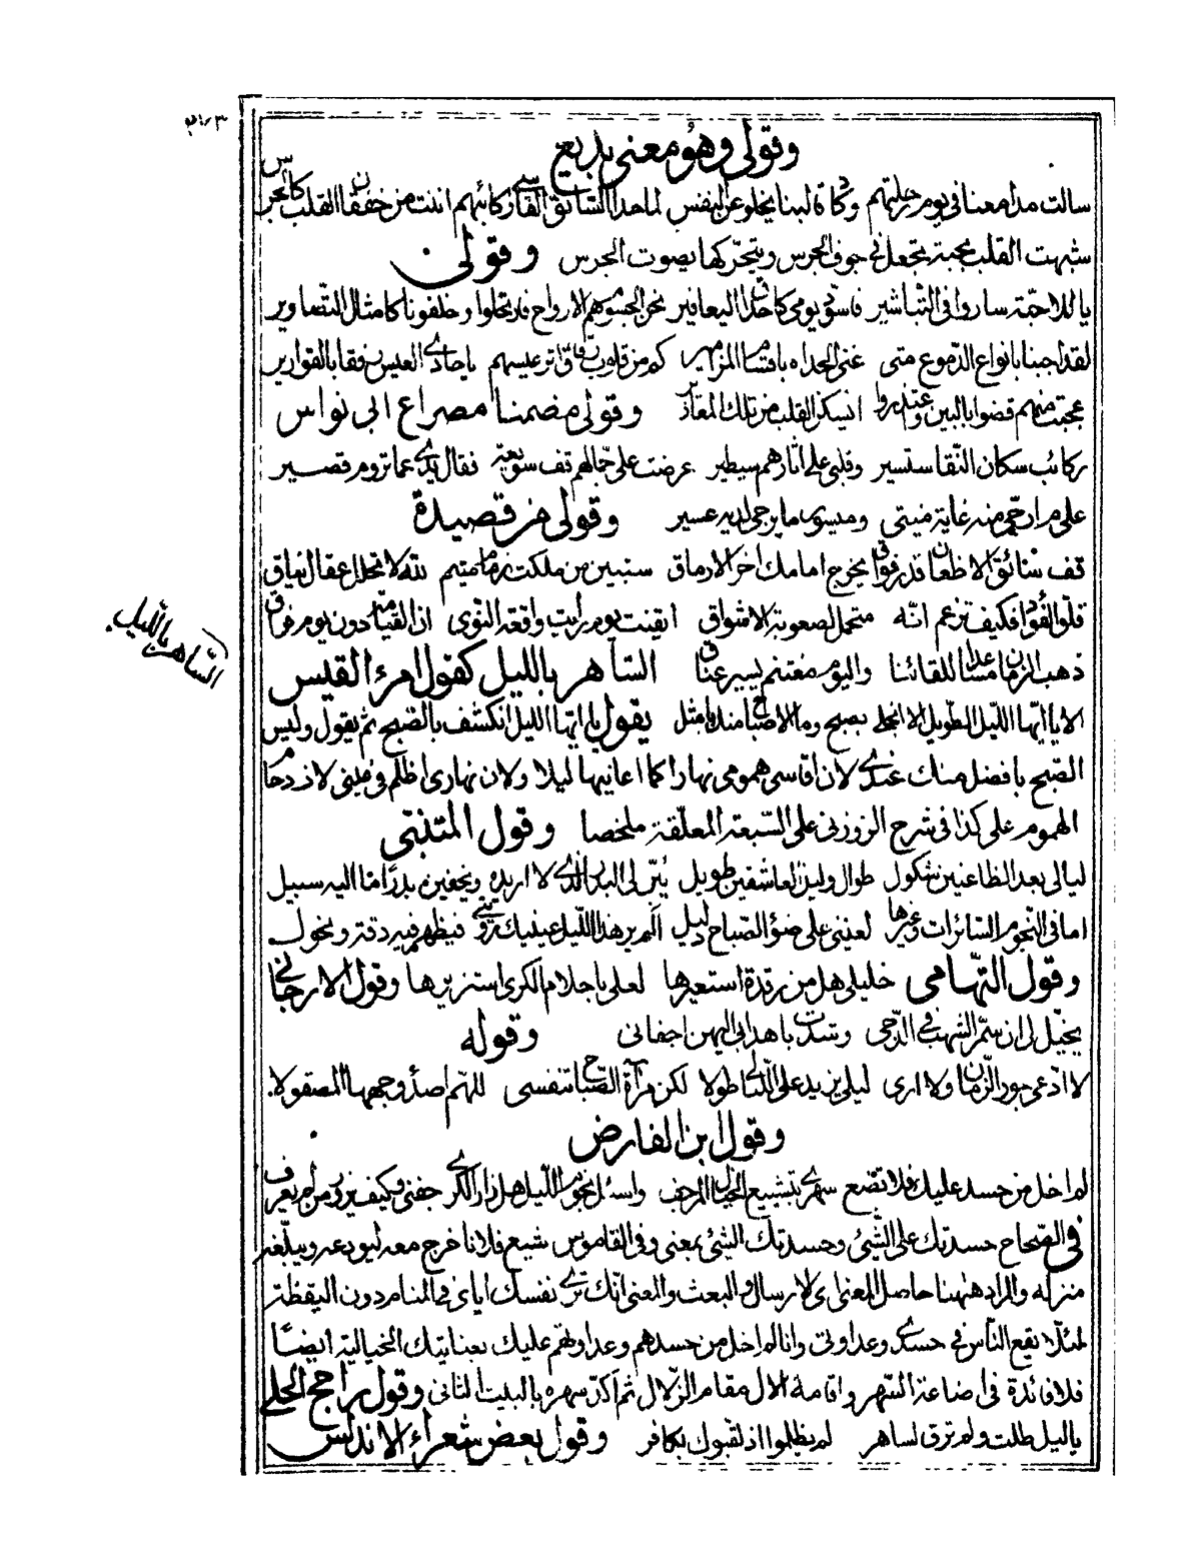 ٣٧٣
وقولى وهو معنى بديع
سالت مدامعنا في يوم رحلتهم وكاد لبنا يخلو عن النفس لما حدا السائق القاسي ركائبهم اننت من خفقان القلب كالجرس
شبهت القلب بحبة تجعل في جوف الجرس ويتحرّكها يصوت الجرس وقولى
يا للاحبّة ساروا في التباشير فاسوّ يومى كاحداق اليعافير نحن الجسوم هم الارواح قد رحلوا وخلفونا كامثال التصاوير
لقد اجبنا بانواع الدّموع متى غنى الحداه باقسام المزامير كم من قلوب رقاق اثر عيسهم يا حادى العيس رفقا بالقوارير
عجبت منهم قضوا بالبين واعتذروا انسيكن القلب من تلك المعاذير وقولى مضمنا مصراع ابى نواس
ركائب سكان النقا ستسير وقلبي على اثارهم سيطير عرضت على جمالهم قف سويعة فقال يدى عما تروم قصير
على مرارحمى منه غاية منيتى وميسور ما يرجى لديه عسير وقولى من قصيدة
قف سائق الاظعان قد رفوا بخرج امامك اخر الارماق ستبين من ملكت زمام متيم لله لا تحلل عقال نياق
قلّوا القوام فكيف تزعم انّه متحمل لصعوبة الاشواق ايقنت يوم رايت واقعة النوى ان القيامة دون يوم فراق
ذهب الزمان مساعدا للقائنا واليوم مغتنم يسير عناق الساهر بالليل كقول امرء القيس
الساهر بالليل
الا يا ايّها الليل الطويل الا انجلى بصبح وما الاصباح منك بامثل يقول يا ايّها الليل انكشف بالصّبح ثم يقول وليس
الصّبح بافضل منك عندى لان اقاسى همومى نهارا كما اعانيها ليلا ولان نهارى اظلم فى عينى لازدحام
الهموم على كذا فى شرح الزوزنى على السّبعة المعلّقة ملخصا وقول المتنبّى
ليالى بعد الظاعنين شكول طوال وليل العاشقين طويل يُبنّ لى البدر الذى لا اريده ويخفين بدرًا ما اليه سبيل
اما فى النّجوم السّائرات وغيرها لعينى على ضوء الصّباح دليل الم ير هذا اللّيل عينيك رؤيتى فيظهر فيه رقة ونحول
وقول التّهامى خليلى هل من رقدة استعيرها لعلى باحلام الكرى استزيرها وقول الارجانى
يخيّل لى ان سمّر الشهب فى الدّجى وشدّت باهدابى اليهن اجفانى وقوله
لا ادّعى جور الزّمان ولا ارى ليلى يزيد على اللّيالى طولا لكن مرآة الصّباح تنفسى للهّم اصدأ وجهها المصقولا
وقول ابن الفارض
لم اخل من حسد عليك فلا تضع سهرى بتشييع الخيال المرجف واسأل نجوم الليل هل زار الكرى جفنى وكيف يزور من لم يعرف
فى الصّحاح حسدتك على الشّئ وحسدتك الشّئ بمعنى وفى القاموس شيع فلانا خرج معه ليودعه ويبلّغه
منزله والمراد هٰهنا حاصل المعنى اى الارسال والبعث والمعنى انّك ترى نفسك اياى فى المنام دون اليقظة
لئلّا يقع النّاس فى حسدى وعداوتى وانا لم اخل من حسدهم وعداوتهم عليك بعنايتك الخيالية ايضًا
فلا فائدة فى اضاعة السّهر واقامة الآل مقام الزّلال ثم اكدّ سهره بالبيت الثانى وقول راجح الحلى
يا ليل طلت ولم ترق لساهر لم يظلموا اذ لقبوك بكافر وقول بعض شعراء الاندلس